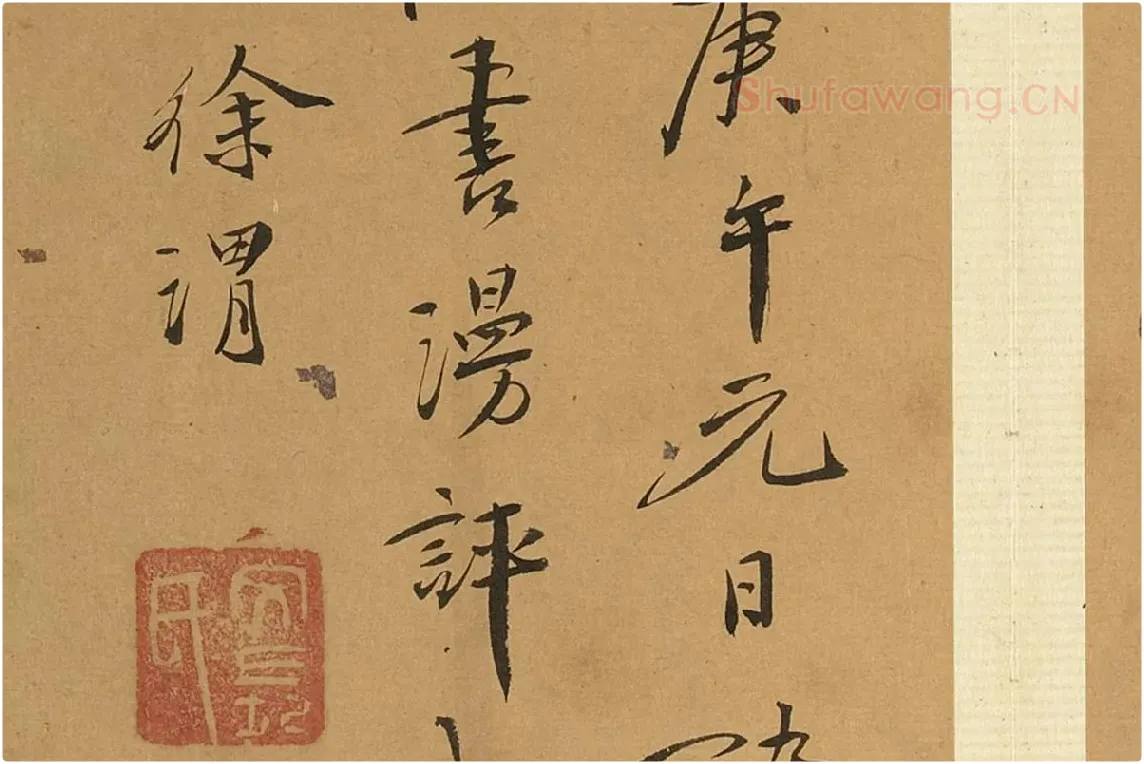 庚午元日
書漫評
徐渭
Shufawang.CN